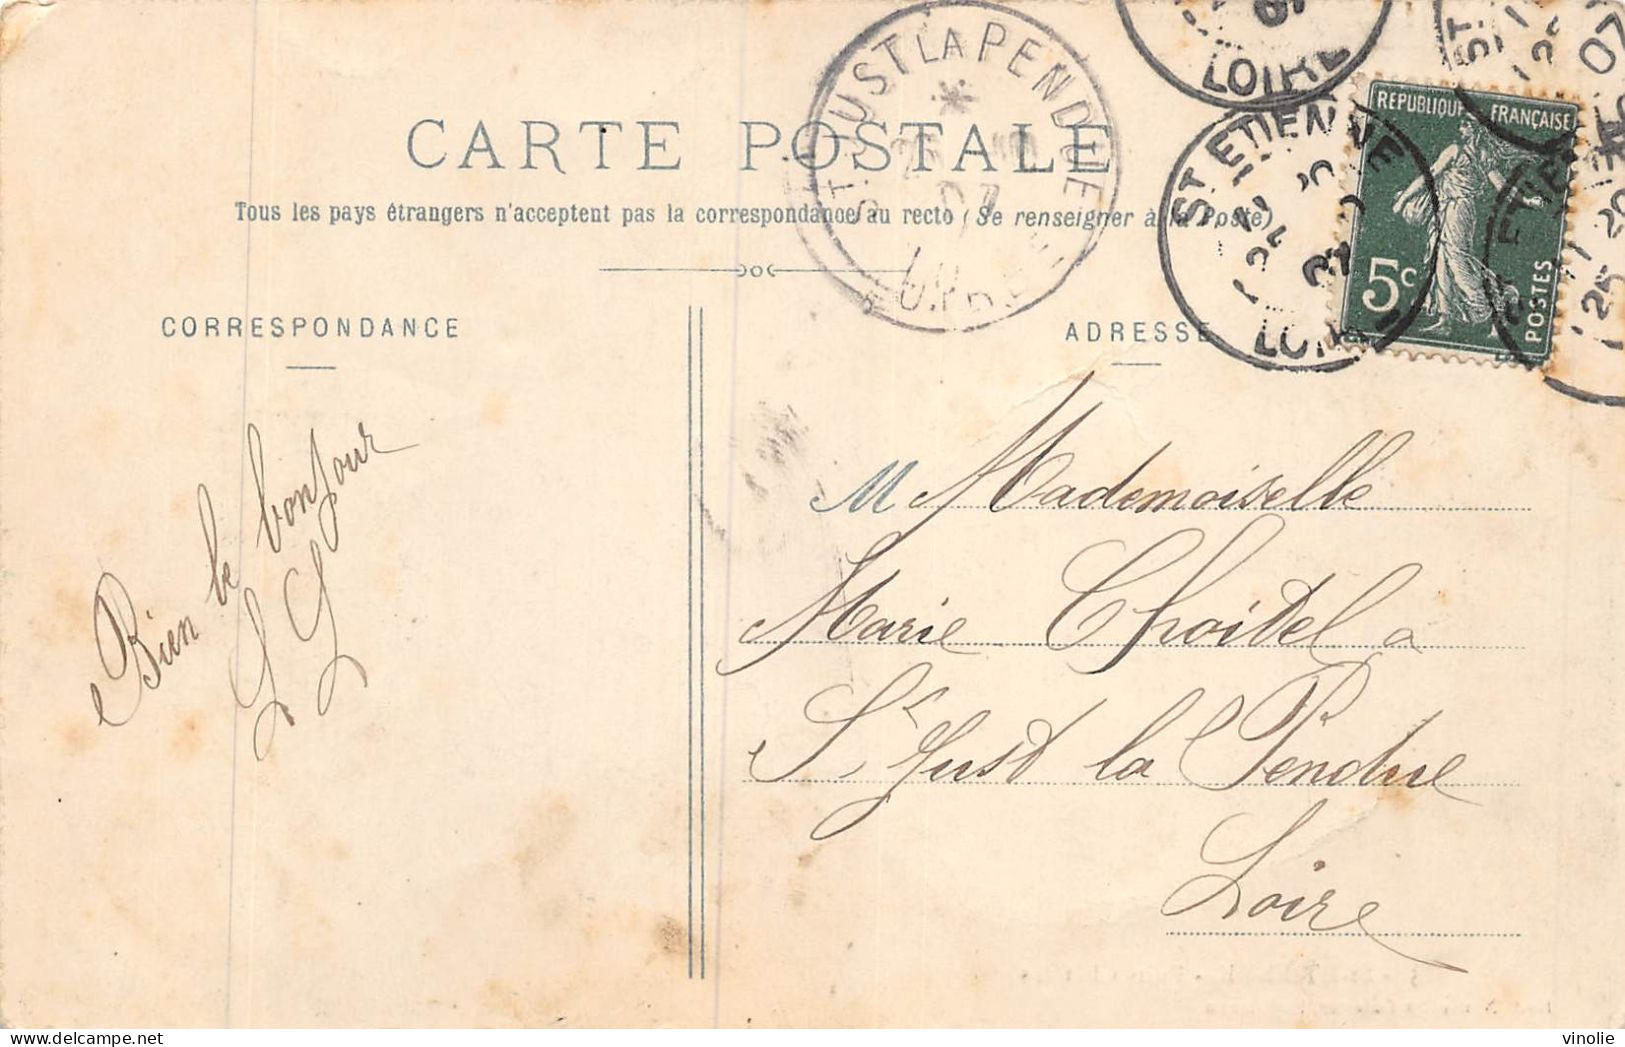 CARTE POSTALE
Tous les pays étrangers n'acceptent pas la correspondance au recto (Se renseigner à la Poste)
CORRESPONDANCE
ADRESSE
ST JUST LA PENDUE
07
LOIRE
LOIRE
ST ETIENNE
07
LOIRE
REPUBLIQUE FRANÇAISE
5c
POSTES
07
Bien le bonjour
M Mademoiselle
Marie Choitel a
St Just la Pendue
Loire
vinolie